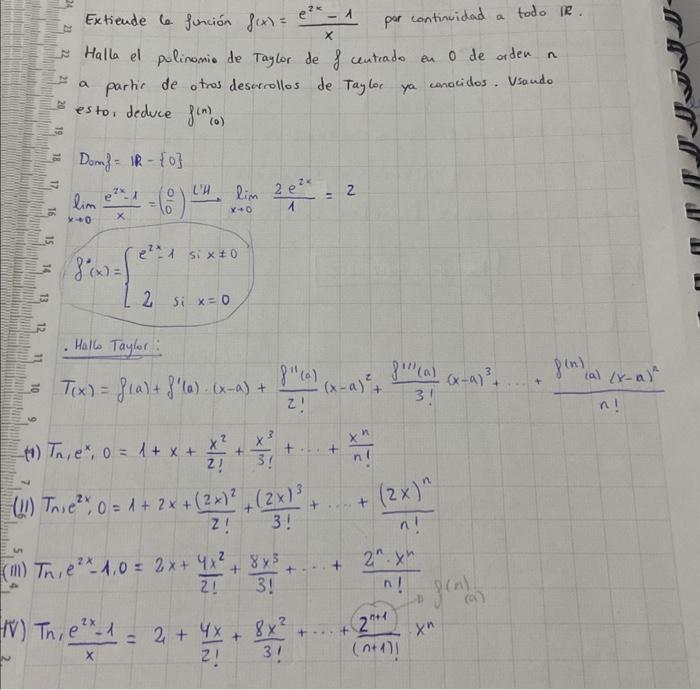 Extiende la función f(x) = (e^{2x} - 1)/x por continuidad a todo ℝ.
Halla el polinomio de Taylor de f centrado en 0 de orden n
a partir de otros desarrollos de Taylor ya conocidos. Usando
esto, deduce f^{(n)}(0)
Dom f = ℝ - {0}
lim_{x→0} (e^{2x} - 1)/x = (0/0) →^{L'H} lim_{x→0} 2e^{2x}/1 = 2
f*(x) = { e^{2x} - 1 si x ≠ 0
2 si x = 0
. Hallo Taylor:
T(x) = f(a) + f'(a) · (x-a) + f''(a)/2! (x-a)^2 + f'''(a)/3! (x-a)^3 + .... + f^{(n)}(a) (x-a)^n / n!
(I) Tn, e^x, 0 = 1 + x + x^2/2! + x^3/3! + ... + x^n/n!
(II) Tn, e^{2x}, 0 = 1 + 2x + (2x)^2/2! + (2x)^3/3! + .... + (2x)^n/n!
(III) Tn, e^{2x} - 1, 0 = 2x + 4x^2/2! + 8x^3/3! + ... + 2^n · x^n/n!
f^{(n)}(a)
IV) Tn, (e^{2x} - 1)/x = 2 + 4x/2! + 8x^2/3! + ... + 2^{n+1}/(n+1)! · x^n
24
23
22
21
20
19
18
17
16
15
14
13
12
11
10
9
7
6
5
4
2